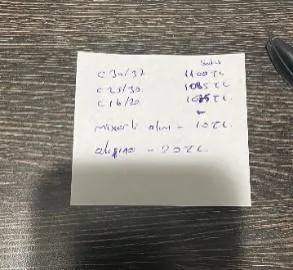 C 30/37 1100 TL
C 25/30 1085 TL
C 16/20 TL
mixerli alım - 10 TL
- 20 TL